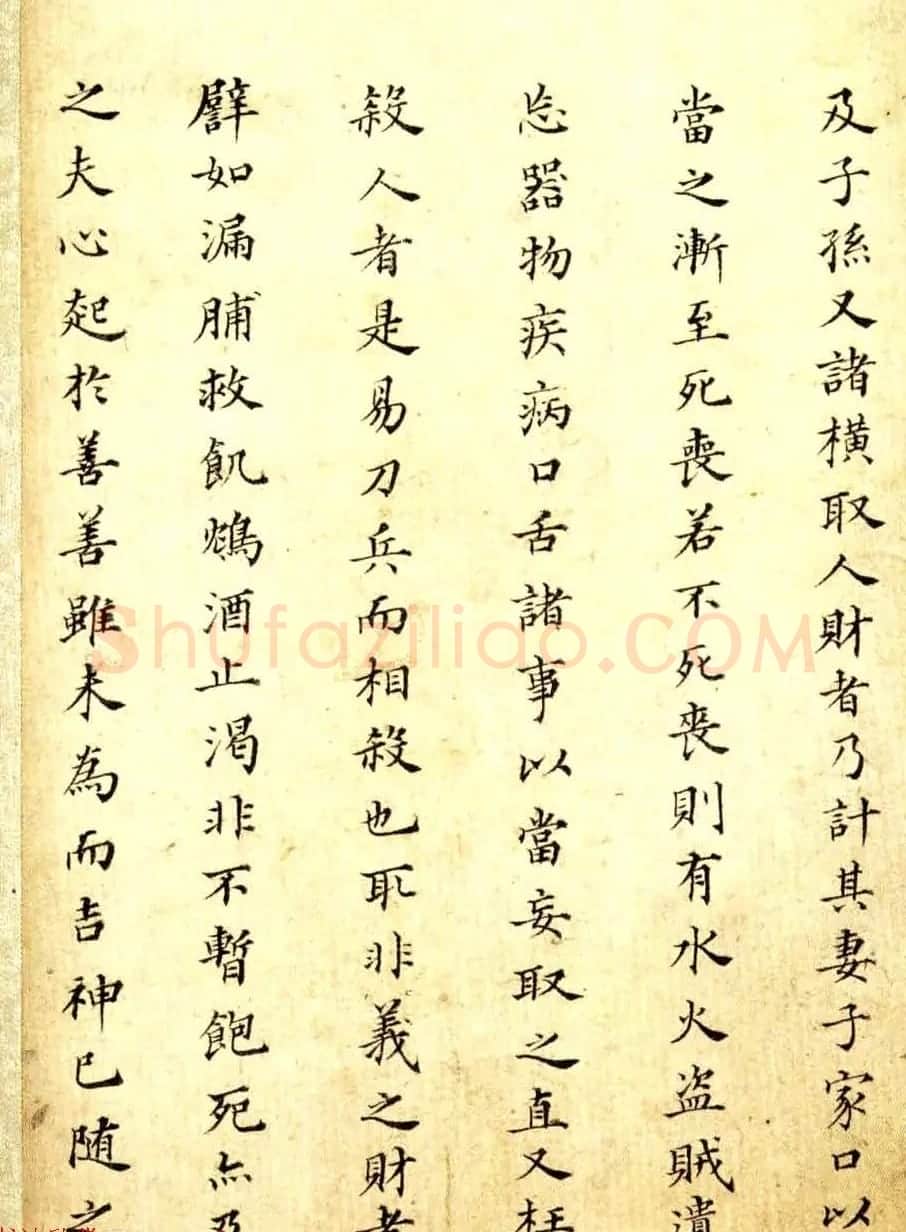 及子孫又諸橫取人財者乃計其妻子家口以
當之漸至死喪若不死喪則有水火盜賊遺
忘器物疾病口舌諸事以當妄取之直又枉
殺人者是易刀兵而相殺也取非義之財者
譬如漏脯救飢鴆酒止渴非不暫飽死亦及
之夫心起於善善雖未為而吉神已隨之
Shufaziliao.COM